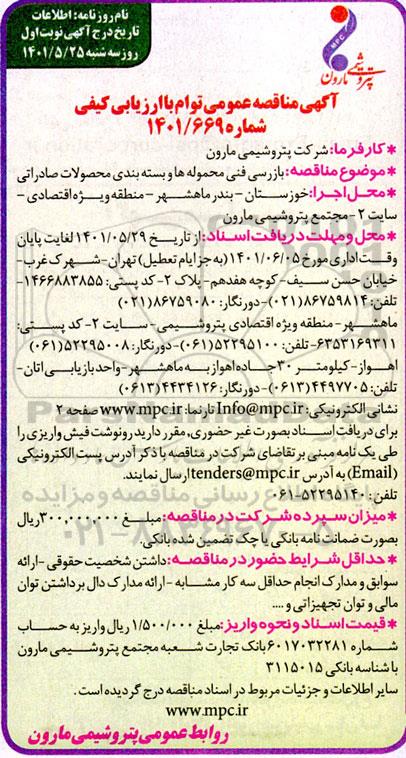 نام روزنامه: اطلاعات
تاریخ درج آگهی نوبت اول
روز سه شنبه ۱۴۰۱/۵/۲۵
MPC
پتروشیمی مارون
آگهی مناقصه عمومی توام با ارزیابی کیفی
شماره ۱۴۰۱/۶۶۹
* کارفرما: شرکت پتروشیمی مارون
* موضوع مناقصه: بازرسی فنی محموله ها و بسته بندی محصولات صادراتی
* محل اجرا: خوزستان - بندر ماهشهر - منطقه ویژه اقتصادی -
سایت ۲ - مجتمع پتروشیمی مارون
* محل و مهلت دریافت اسناد: از تاریخ ۱۴۰۱/۰۵/۲۹ لغایت پایان
وقت اداری مورخ ۱۴۰۱/۰۶/۰۵ (به جز ایام تعطیل) تهران - شهرک غرب -
خیابان حسن سیف - کوچه هفدهم - پلاک ۲ - کد پستی: ۱۴۶۶۸۸۳۸۵۵ -
تلفن: ۸۶۷۵۹۸۱۴ (۰۲۱) - دورنگار: ۸۶۷۵۹۰۸۰ (۰۲۱)
ماهشهر - منطقه ویژه اقتصادی پتروشیمی - سایت ۲ - کد پستی:
۶۳۵۳۱۶۹۳۱۱ - تلفن: ۵۲۲۹۵۱۰۰ (۰۶۱) - دورنگار: ۵۲۲۹۵۰۰۸ (۰۶۱)
اهواز - کیلومتر ۳۰ جاده اهواز به ماهشهر - واحد بازیابی اتان -
تلفن: ۴۴۹۷۷۰۵ (۰۶۱۳) - دورنگار: ۴۴۳۴۱۲۶ (۰۶۱۳)
نشانی الکترونیکی: Info@mpc.ir تارنما: www.mpc.ir صفحه ۲
برای دریافت اسناد بصورت غیر حضوری, مقرر دارید رونوشت فیش واریزی را
طی یک نامه مبنی بر تقاضای شرکت در مناقصه با ذکر آدرس پست الکترونیکی
(Email) به آدرس tenders@mpc.ir ارسال نمایند.
تلفن: ۵۲۲۹۵۱۴۰-۰۶۱
* میزان سپرده شرکت در مناقصه: مبلغ ۳۰۰,۰۰۰,۰۰۰ ریال
بصورت ضمانت نامه بانکی یا چک تضمین شده بانکی.
* حداقل شرایط حضور در مناقصه: داشتن شخصیت حقوقی - ارائه
سوابق و مدارک انجام حداقل سه کار مشابه - ارائه مدارک دال بر داشتن توان
مالی و توان تجهیزاتی و ....
* قیمت اسناد و نحوه واریز: مبلغ ۱/۵۰۰/۰۰۰ ریال واریز به حساب
شماره ۶۰۱۷۰۳۲۲۸۱ بانک تجارت شعبه مجتمع پتروشیمی مارون
با شناسه بانکی ۳۱۱۵۰۱۵
سایر اطلاعات و جزئیات مربوط در اسناد مناقصه درج گردیده است.
www.mpc.ir
روابط عمومی پتروشیمی مارون